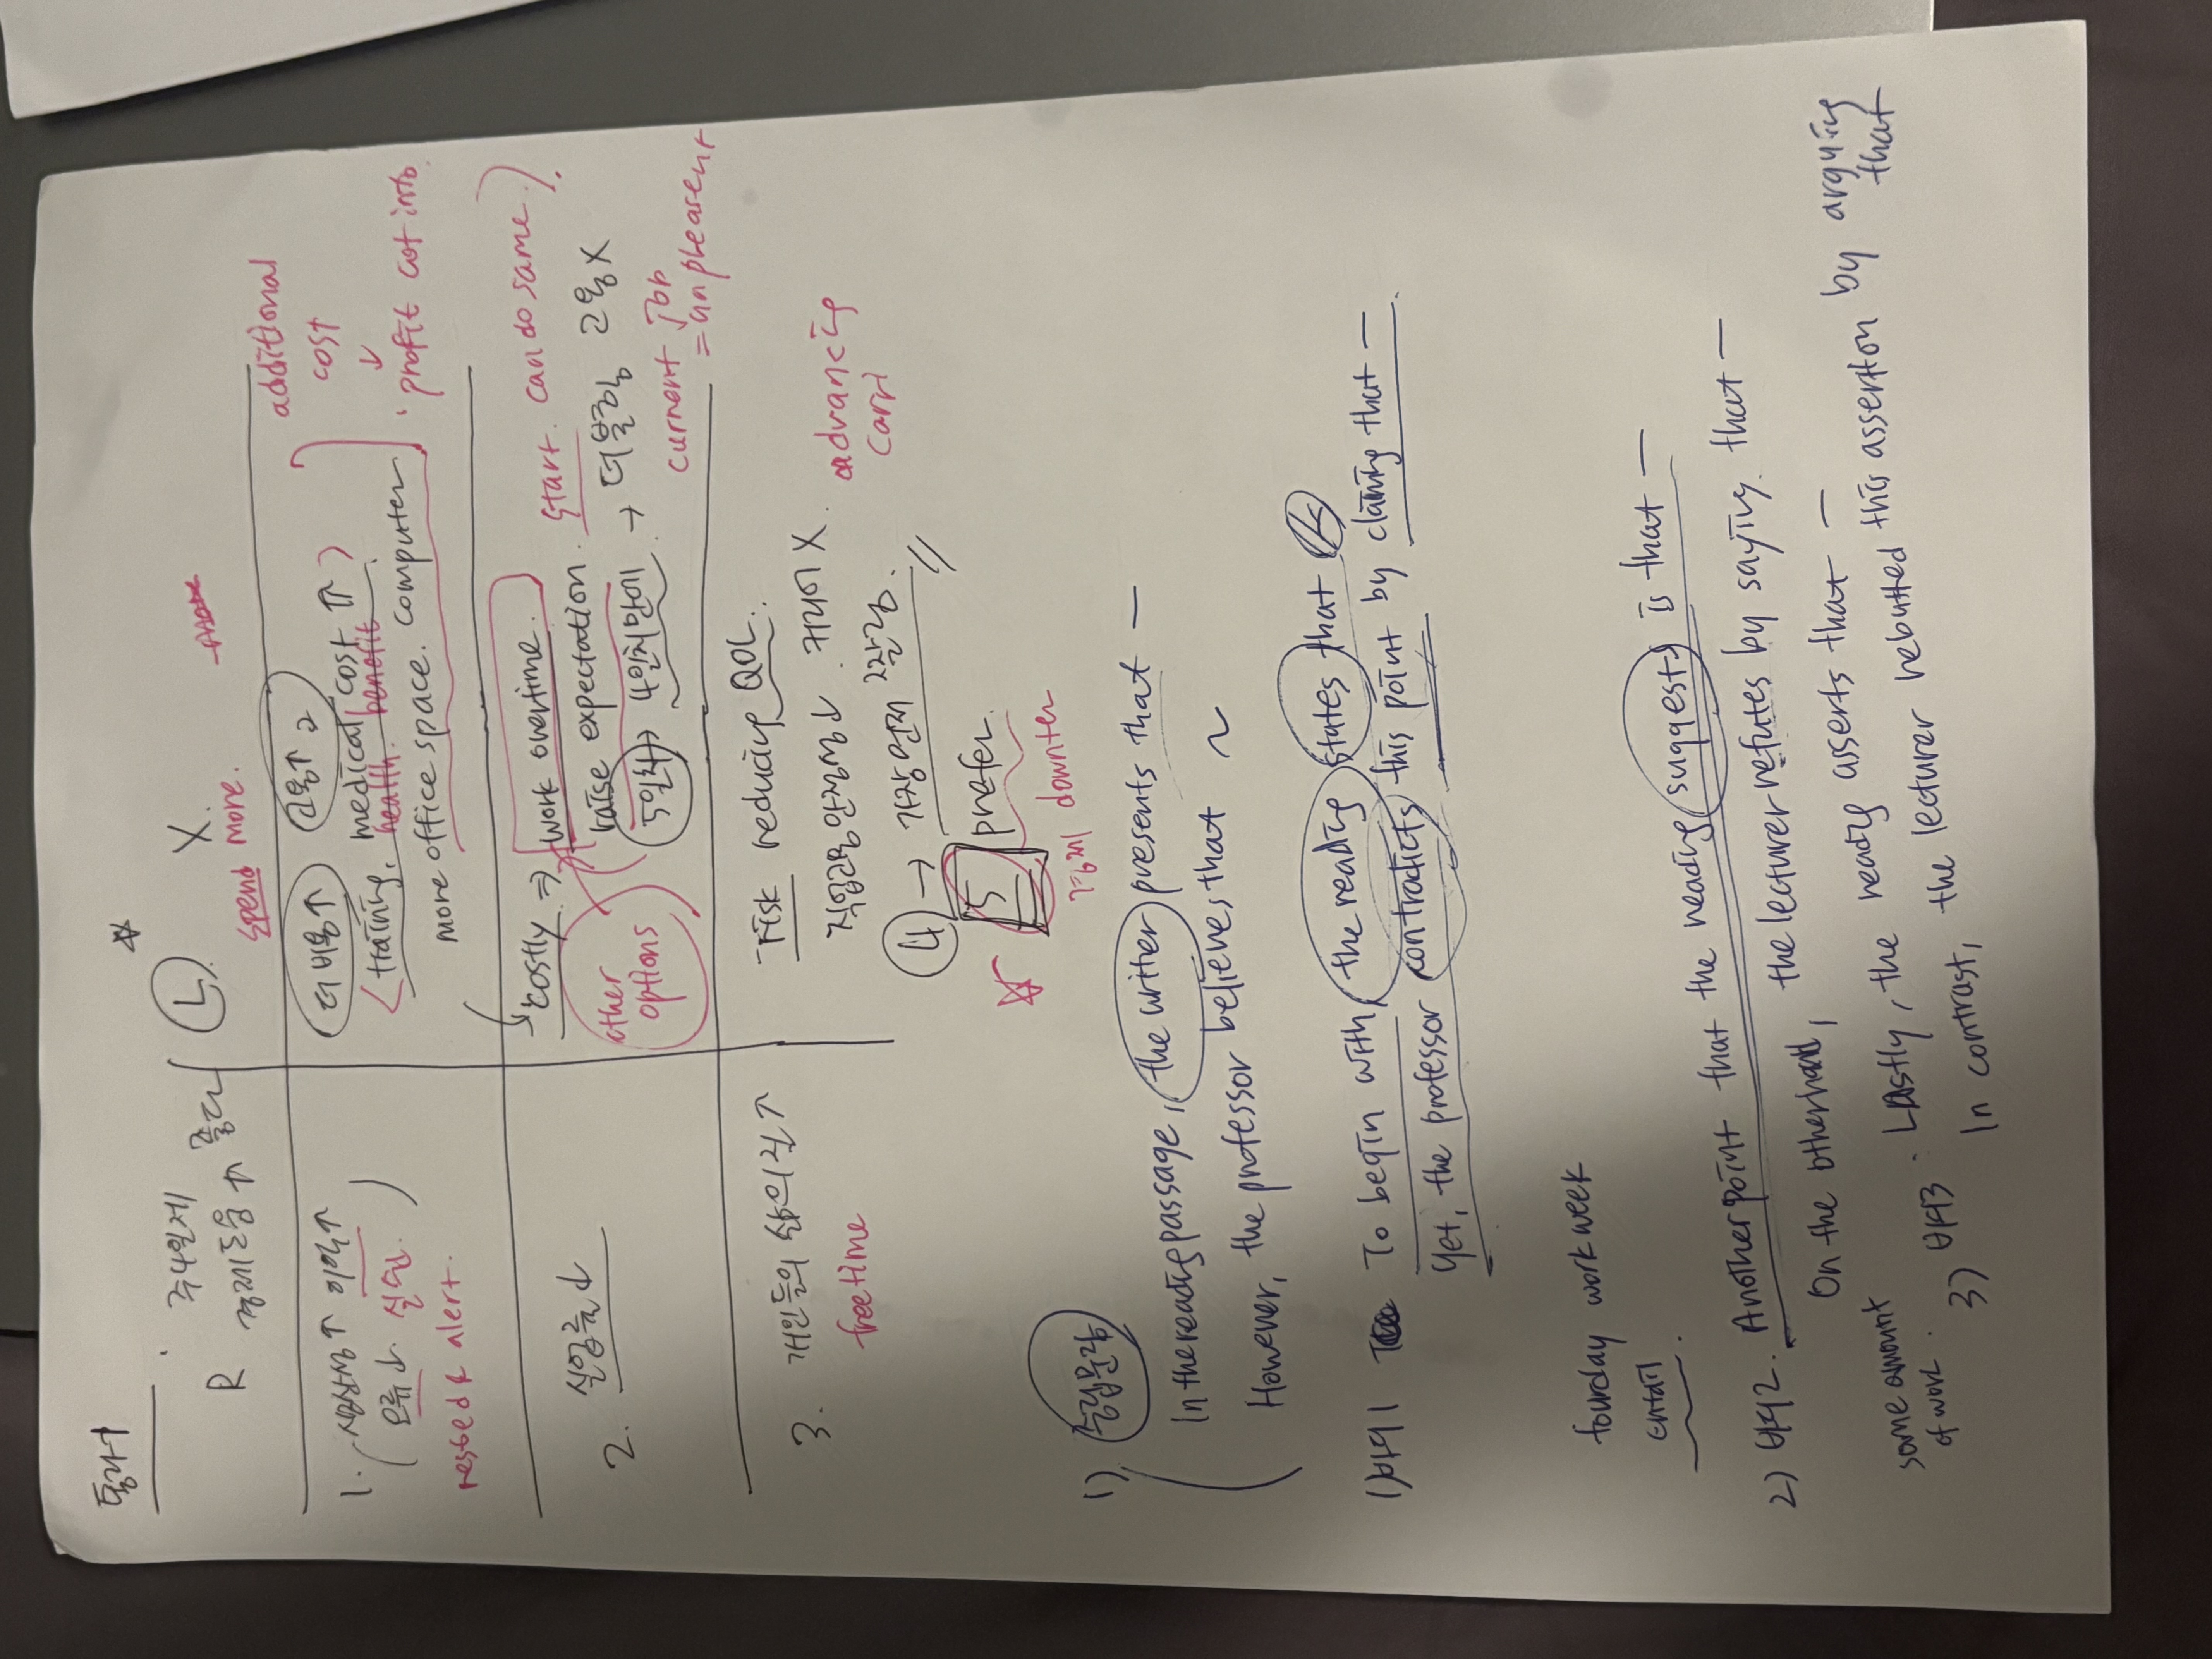 통합
주4일제
R 경제도움 ↑ 좋다
L X
spend more.
1. 생산성↑ 이익↑
(오류↓ 실수. )
rested & alert.
더 비용↑ 고용↑ 2
< training, medical cost ⇈ >
health benefit
more office space. computer
additional
cost
↓
profit cot into
2. 실업률↓
costly ⇒ work overtime.
raise expectation.
start. can do same.
5일치 → 4일치만에 → 더 몰림 고용X
other
options
current job
= unpleasent
3. 개인들의 삶의 질↑
free time
risk reducing QOL.
직업고용안정성↓ 커리어 X.
advancing
4 → 가장 먼저 짤림.
5 prefer.
downter
1) 수립문장
In the reading passage, the writer presents that —
However, the professor believes that ~
1) 바디1 To begin with, the reading states that
Yet, the professor contradicts this point by claiming that —
fourday workweek
entail
2) 바디2. Another point that the reading suggests is that —
On the otherhand, the lecturer refutes by saying. that —
same amount
of work.
3) 바디3. Lastly, the reading asserts that —
In contrast, the lecturer rebutted this assertion by arguing
that